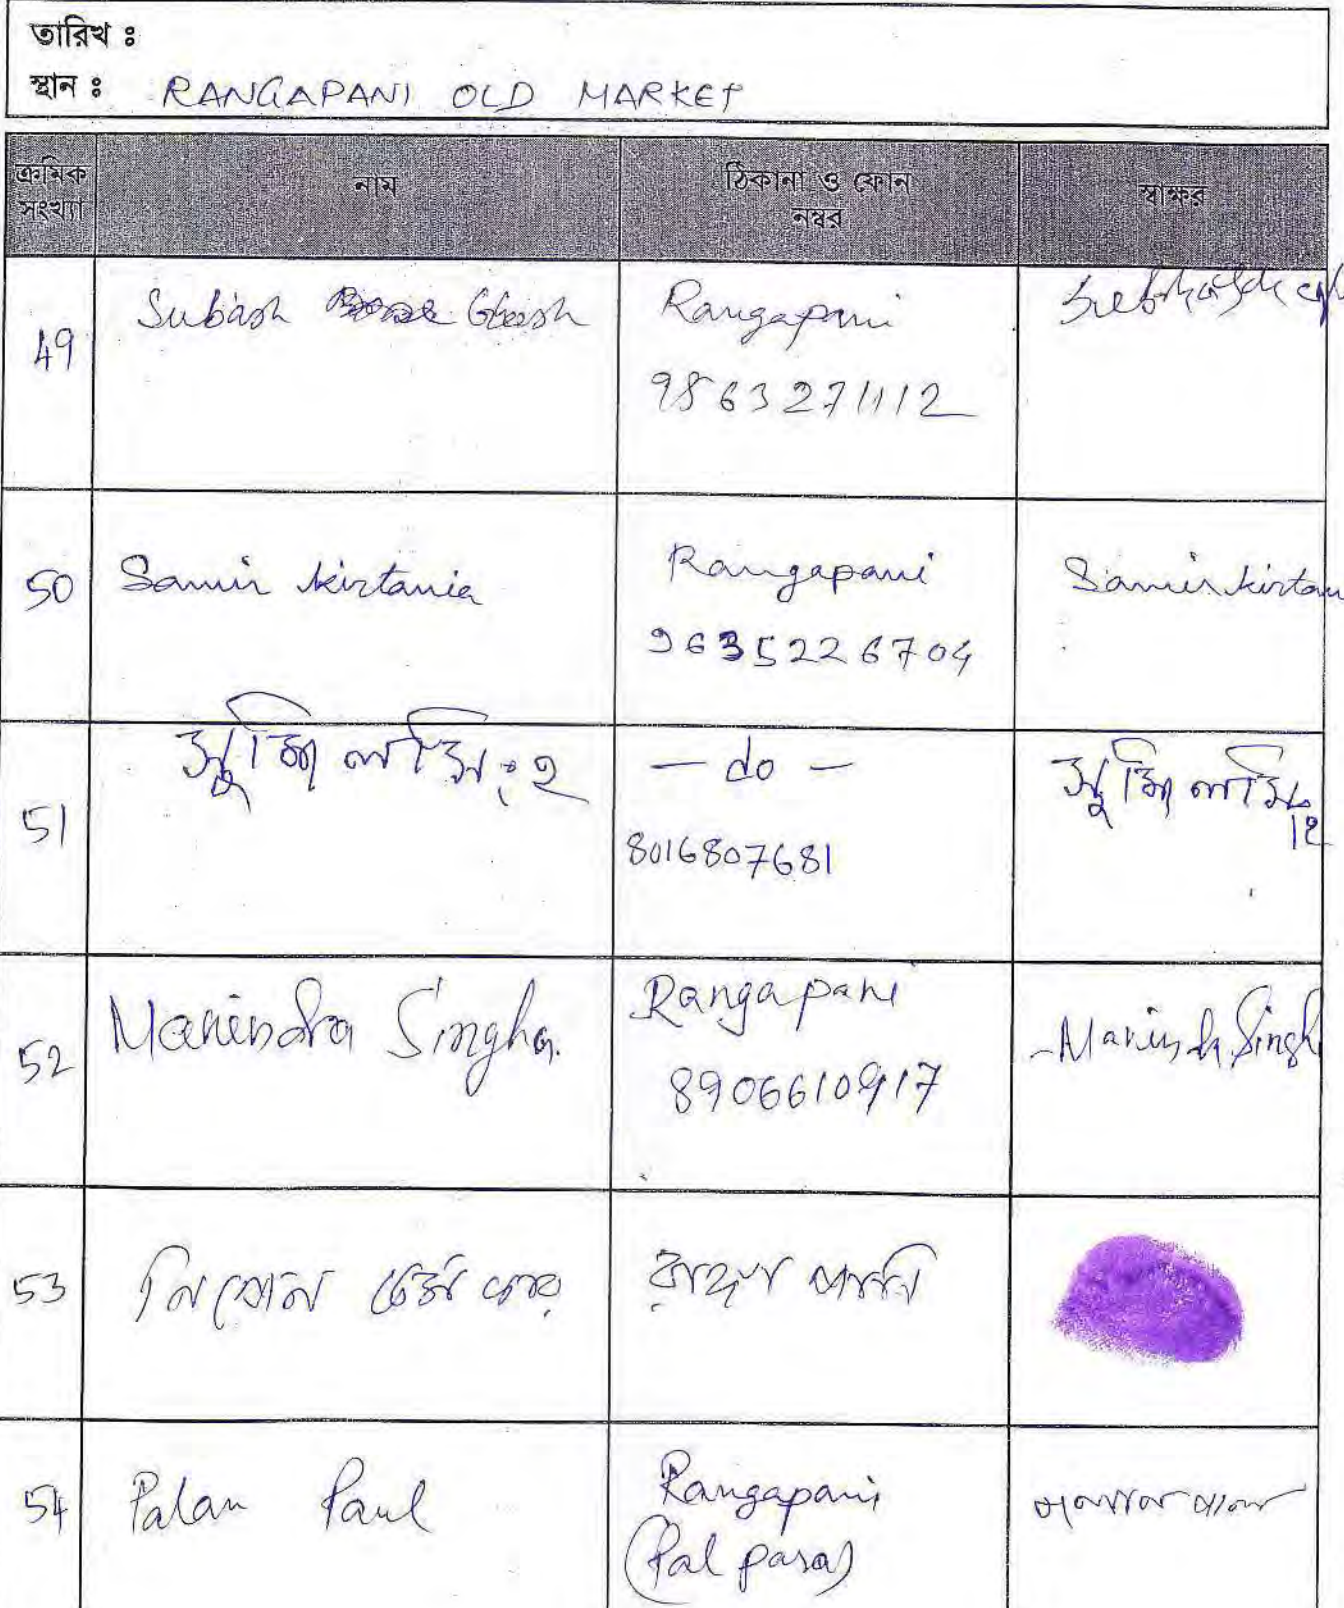 তারিখ ঃ
স্থান ঃ RANGAPANI OLD MARKET
ক্রমিক সংখ্যা
নাম
ঠিকানা ও ফোন নম্বর
স্বাক্ষর
49
Subash Ghosh
Rangapani
9863271112
50
Samir kirtania
Rangapani
9635226704
Samir kirtan
51
— do —
8016807681
52
Manindra Singha.
Rangapani
8906610917
Manindra Singh
53
রাঙ্গা পানি
54
Palan Paul
Rangapani
(Pal para)
পাল